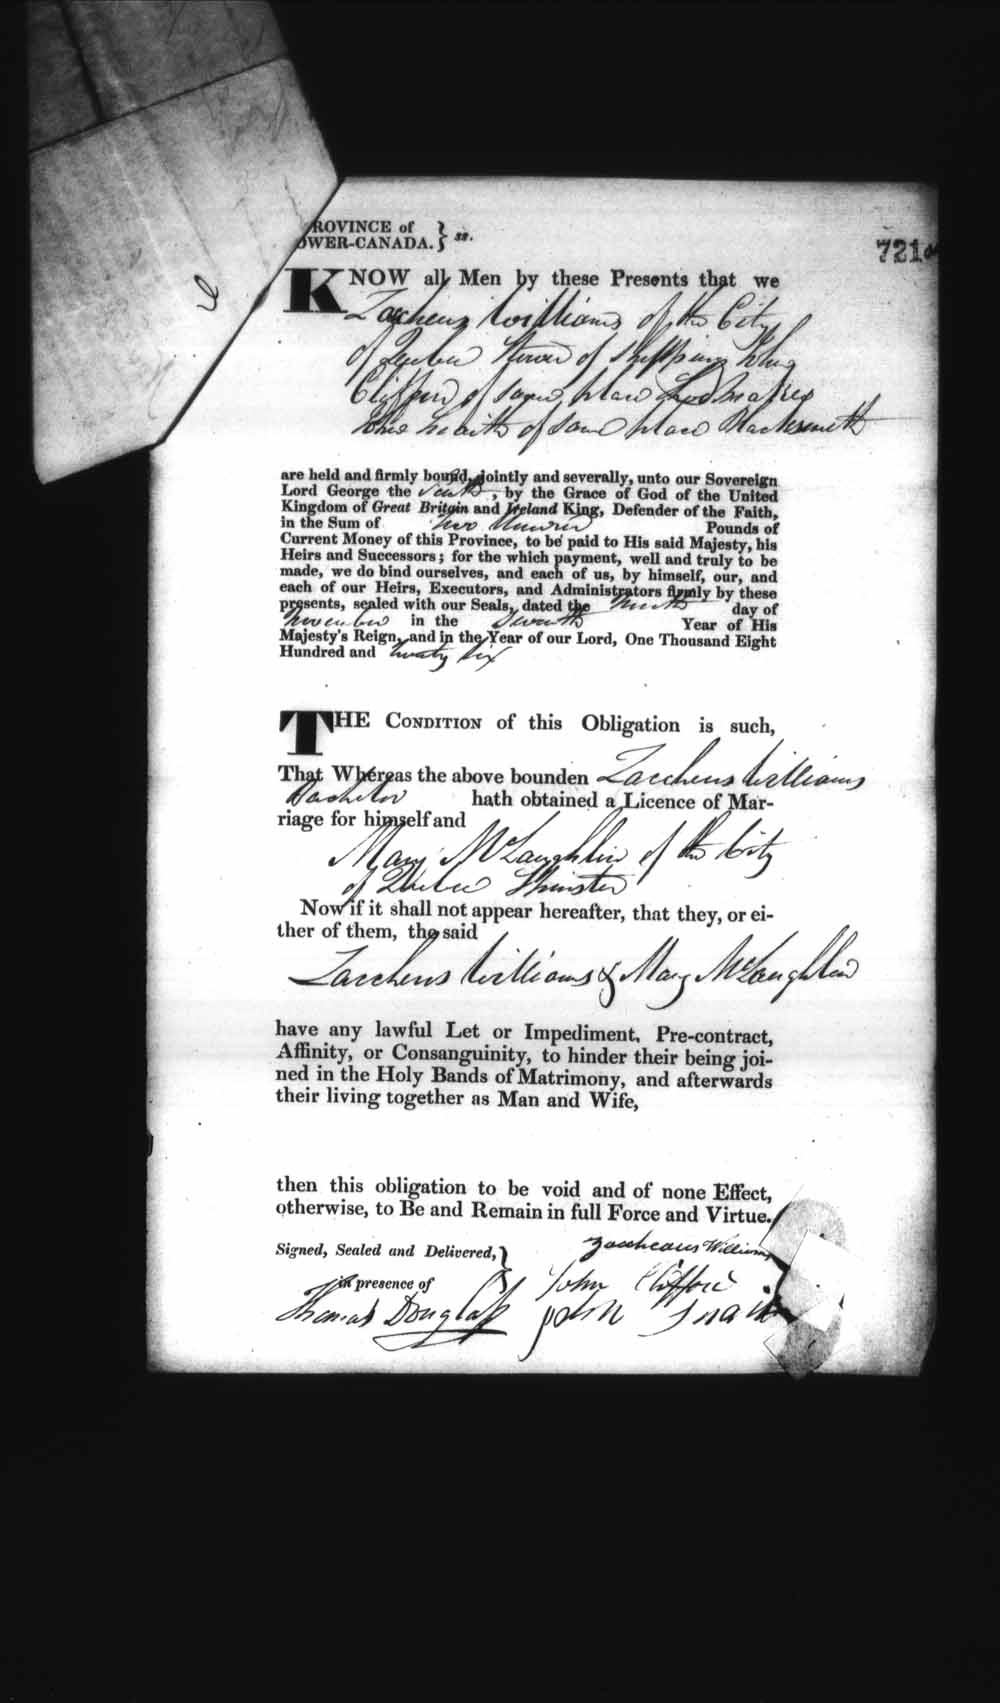 ROVINCE of
OWER-CANADA. } ss.
721
KNOW all Men by these Presents that we
Zacheus Williams of the City
of Quebec Stower of Shipping John
Clifford of same place
John Smith of same place Blacksmith
are held and firmly bound, jointly and severally, unto our Sovereign
Lord George the fourth, by the Grace of God of the United
Kingdom of Great Britain and Ireland King, Defender of the Faith,
in the Sum of Two Hundred Pounds of
Current Money of this Province, to be paid to His said Majesty, his
Heirs and Successors; for the which payment, well and truly to be
made, we do bind ourselves, and each of us, by himself, our, and
each of our Heirs, Executors, and Administrators firmly by these
presents, sealed with our Seals, dated the Ninth day of
November in the Seventh Year of His
Majesty's Reign, and in the Year of our Lord, One Thousand Eight
Hundred and twenty six
THE CONDITION of this Obligation is such,
That Whereas the above bounden Zaccheus Williams
Bachelor hath obtained a Licence of Mar-
riage for himself and
Mary McLaughlin of the City
of Quebec Spinster
Now if it shall not appear hereafter, that they, or ei-
ther of them, the said
Zaccheus Williams & Mary McLaughlin
have any lawful Let or Impediment, Pre-contract,
Affinity, or Consanguinity, to hinder their being joi-
ned in the Holy Bands of Matrimony, and afterwards
their living together as Man and Wife,
then this obligation to be void and of none Effect,
otherwise, to Be and Remain in full Force and Virtue.
Signed, Sealed and Delivered, } Zaccheaus Williams
in presence of John Clifford
Thomas Douglass John